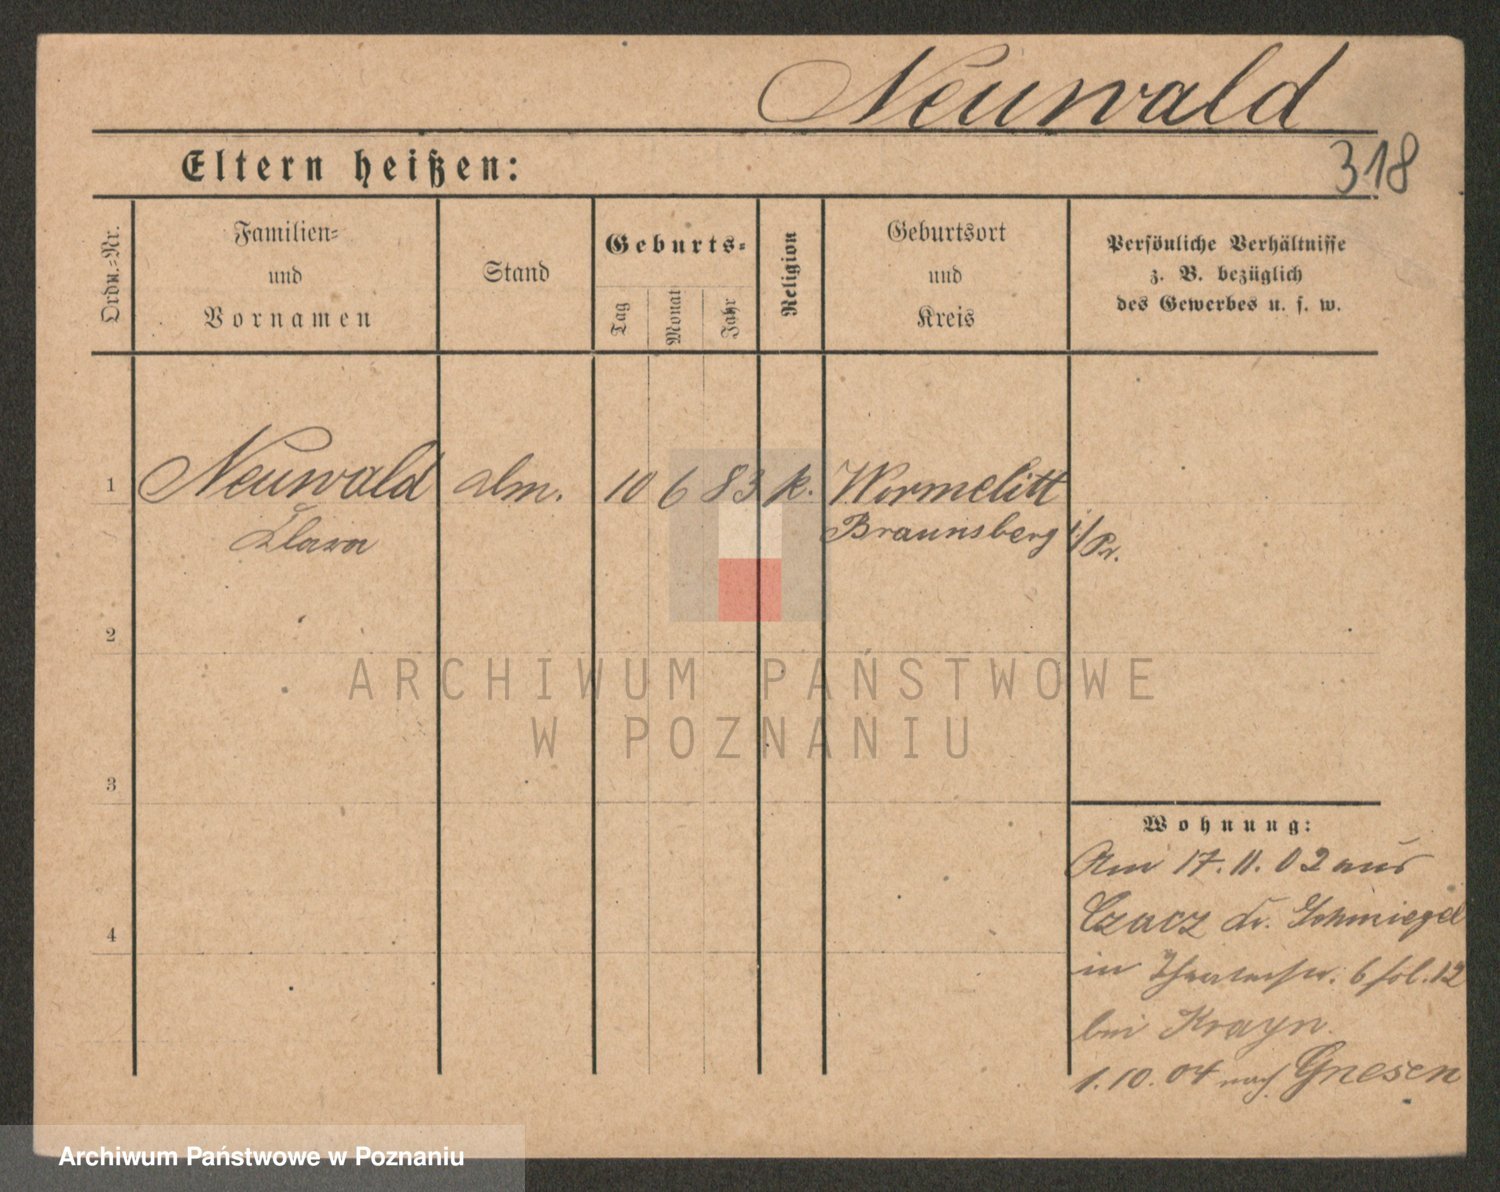 Neuwald
Eltern heißen:
318
Ordn.=Nr.
Familien=
und
Vornamen
Stand
Geburts=
Tag
Monat
Jahr
Religion
Geburtsort
und
Kreis
Persönliche Verhältnisse
z. B. bezüglich
des Gewerbes u. s. w.
1 Neuwald 10 6 83 k. Wormelitt
Clara Braunsberg /Pr.
2
3
4
Wohnung:
Am 17.11.02 aus
Czacz Kr. Schmiegel
in Theaterstr. 6 fol. 12
bei Krayn.
1.10.04 nach Gnesen
ARCHIWUM PAŃSTWOWE
W POZNANIU
Archiwum Państwowe w Poznaniu